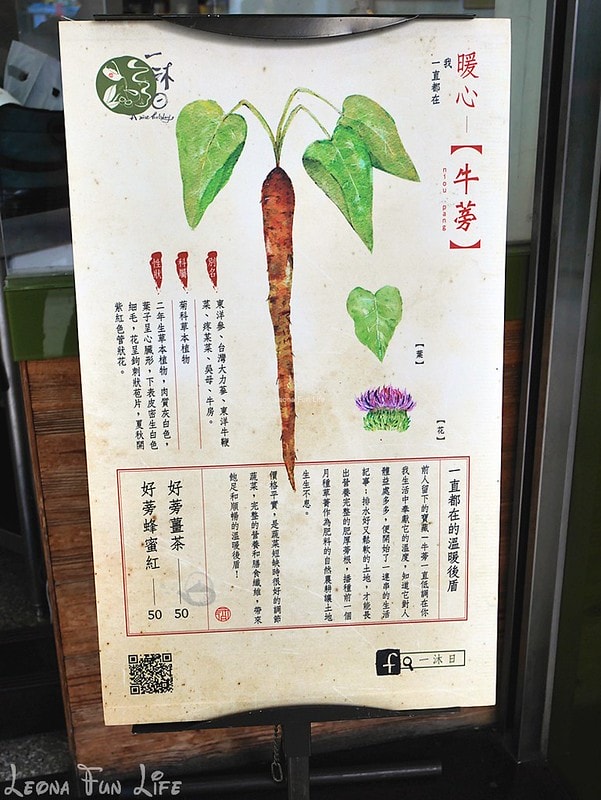 一沐日
A nice holiday
暖心—【牛蒡】
niou pang
我
一直都在
別名
東洋參、台灣大力蔘、東洋牛鞭
菜、疼某菜、吳母、牛房。
科屬
菊科草本植物
性狀
二年生草本植物，肉質灰白色，
葉子呈心臟形，下表皮密生白色
細毛，花呈鉤刺狀苞片，夏秋開
紫紅色管狀花。
【葉】
【花】
一直都在的溫暖後盾
前人留下的寶藏—牛蒡一直低調在你
我生活中奉獻它的溫度，知道它對人
體益處多多，便開始了一連串的生活
記事：排水好又鬆軟的土地，才能長
出營養完整的肥厚蒡根，播種前一個
月種草菁作為肥料的自然農耕讓土地
生生不息。
價格平實，是蔬菜短缺時很好的調節
蔬菜，完整的營養和膳食纖維，帶來
飽足和順暢的溫暖後盾！
好蒡薑茶 50
好蒡蜂蜜紅 50
f 一沐日
Leona Fun Life
Leona Fun Life